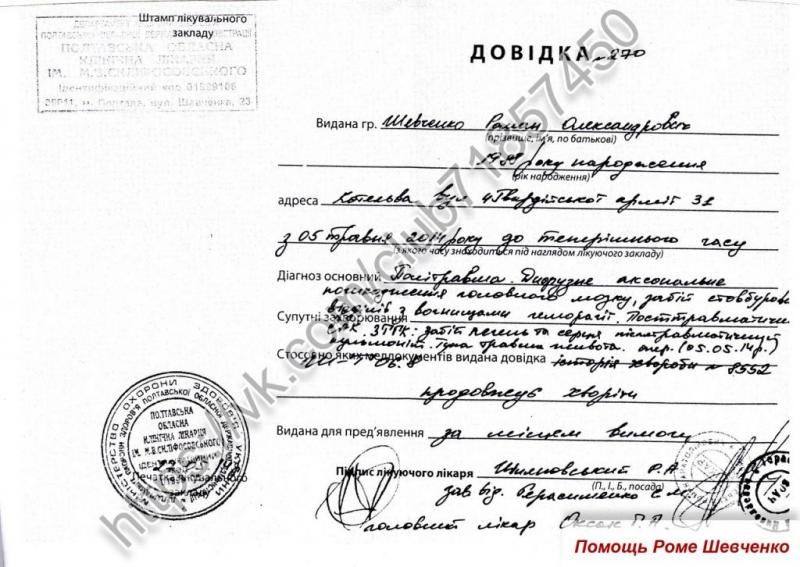 Штамп лікувального
закладу
ПОЛТАВСЬКА ОБЛАСНА
КЛІНІЧНА ЛІКАРНЯ
ІМ. М.В.СКЛІФОСОВСЬКОГО
Ідентифікаційний код 01529106
м. Полтава, вул. Шевченка, 23
ДОВІДКА № 270
Видана гр. Шевченко Роман Олександрович
(прізвище, ім'я, по батькові)
року народження
(рік народження)
адреса Котельва вул 4 Гвардійської армії 31
з 05 травня 2014 року до теперішнього часу
(з якого часу знаходиться під наглядом лікуючого закладу)
Діагноз основний Політравма. Дифузне аксональне
пошкодження головного мозку, забій стовбурових
відділів з вогнищами геморагії. Посттравматичн
Супутні захворювання
САК. ЗТГК: забій легень та серця
пульмоніт. Тупа травма живота. опер. (05.05.14р.)
Стосовно яких меддокументів видана довідка історія хвороби № 8552
продовжує хворіти
Видана для пред'явлення за місцем вимоги
Підпис лікуючого лікаря
(П., І., Б., посада)
зав від. Герасименко С.М
головний лікар
ПОЛТАВСЬКА
ОБЛАСНА
КЛІНІЧНА ЛІКАРНЯ
ІМ. М.В.СКЛІФОСОВСЬКОГО
Печатка лікувального
закладу
vk.com/club71857450
Помощь Роме Шевченко